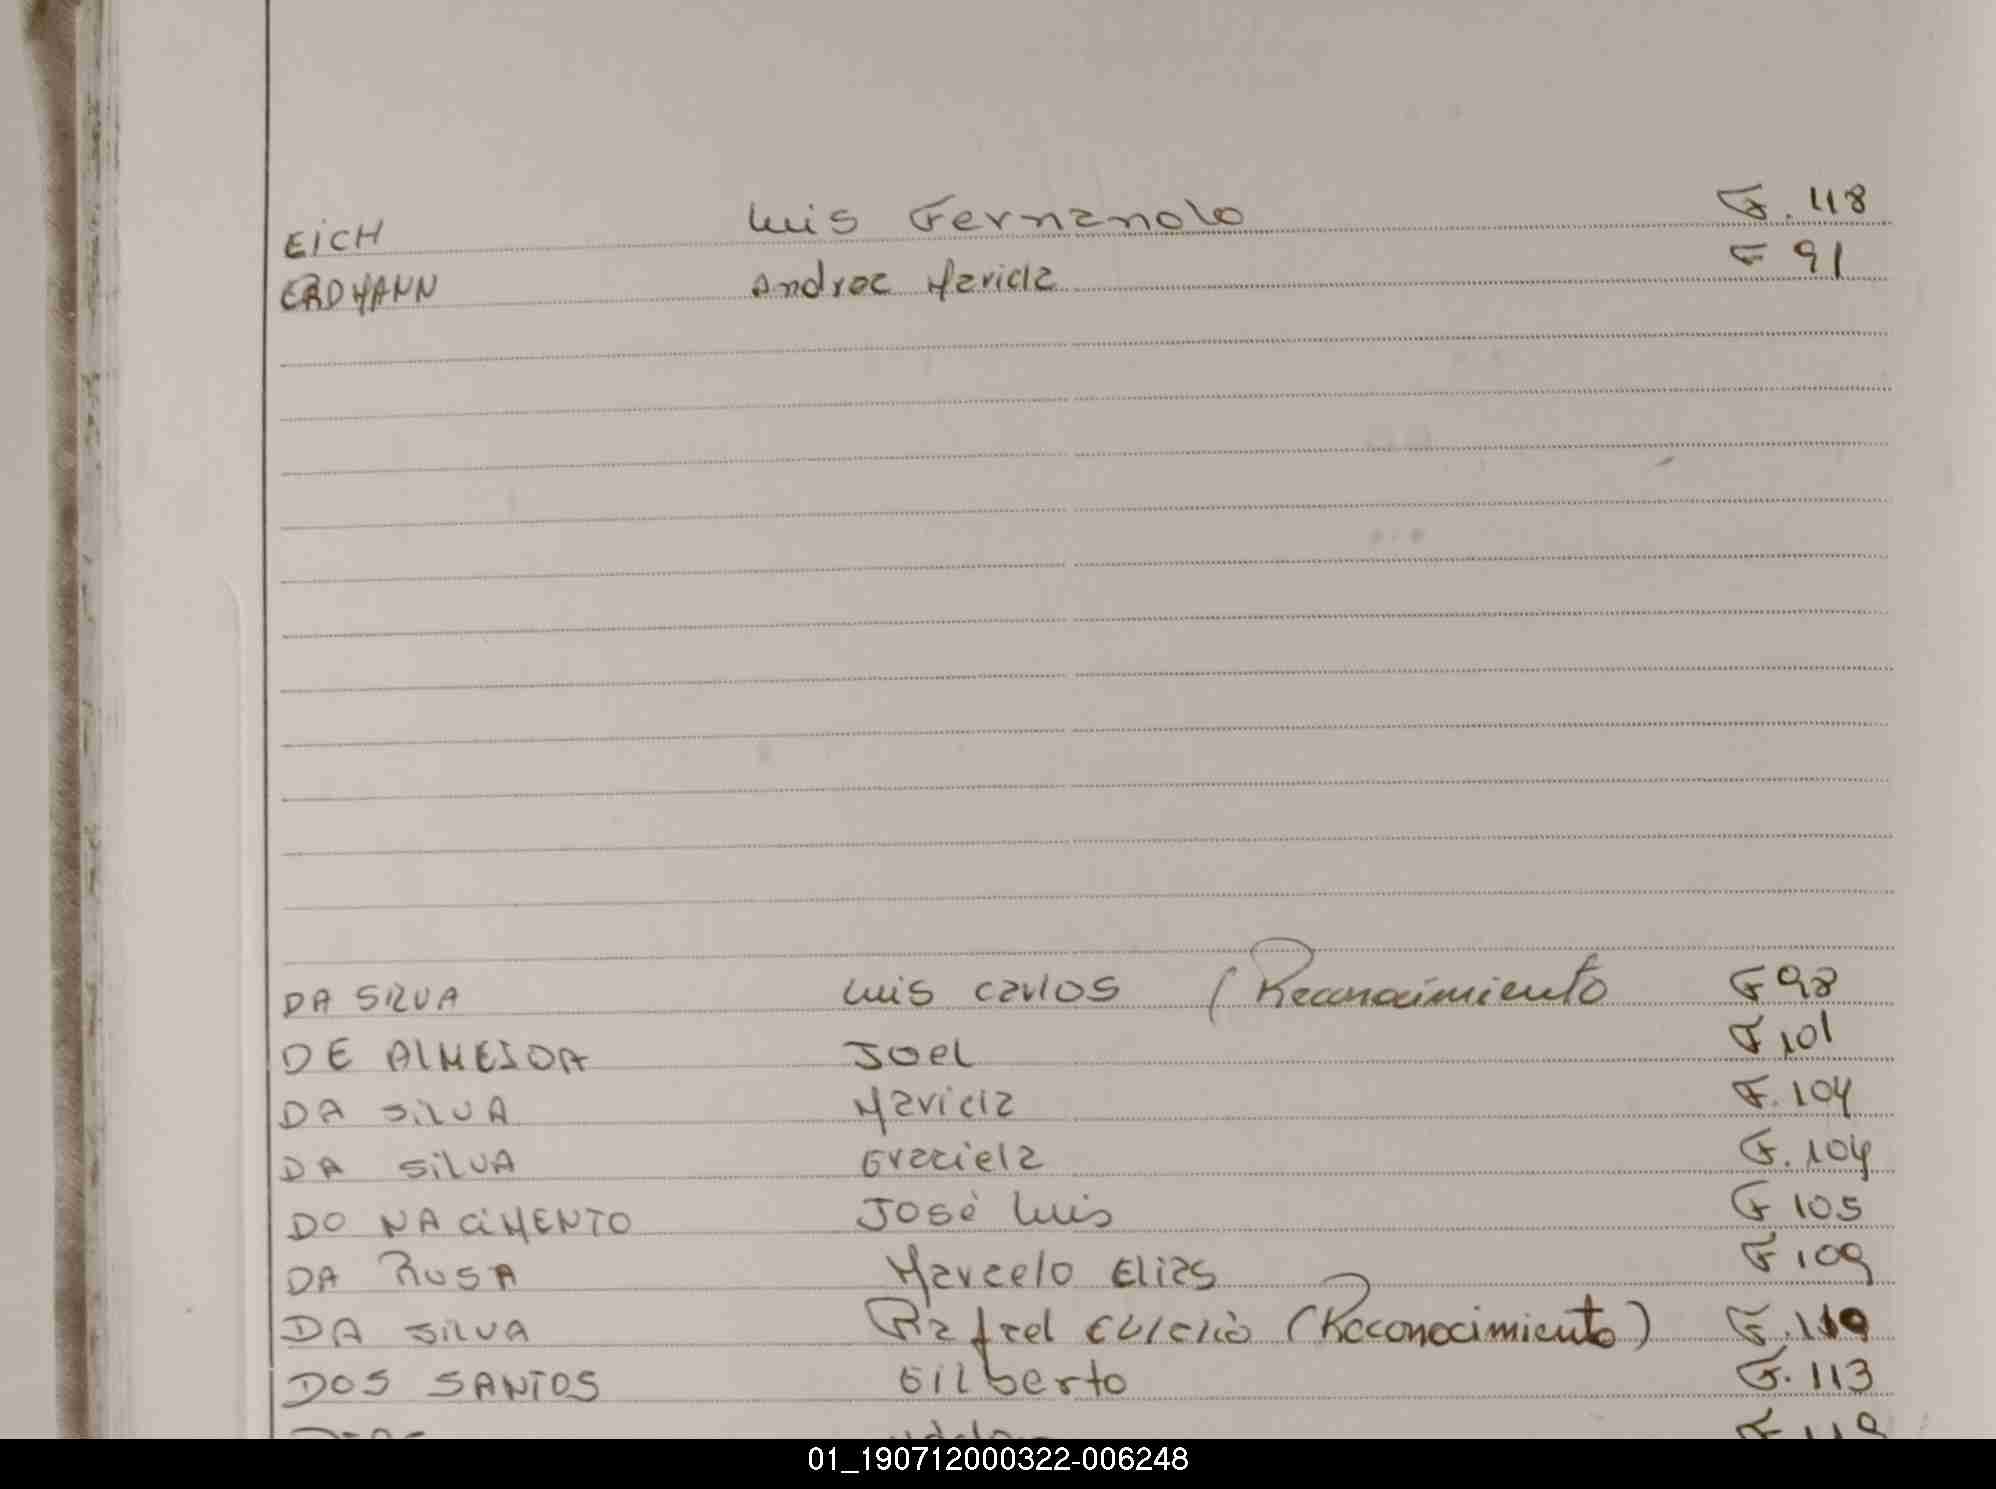 EICH Luis Fernando F. 118
ERDMANN Andrea Maricla F 91
DA SILVA Luis Carlos (Reconocimiento F 98
DE ALMEIDA Joel F 101
DA SILVA Maricla F. 104
DA SILVA Graciela F. 104
DO NACIMENTO José Luis F 105
DA ROSA Marcelo Elias F 109
DA SILVA Rafael (Reconocimiento) F. 110
DOS SANTOS Gilberto F. 113